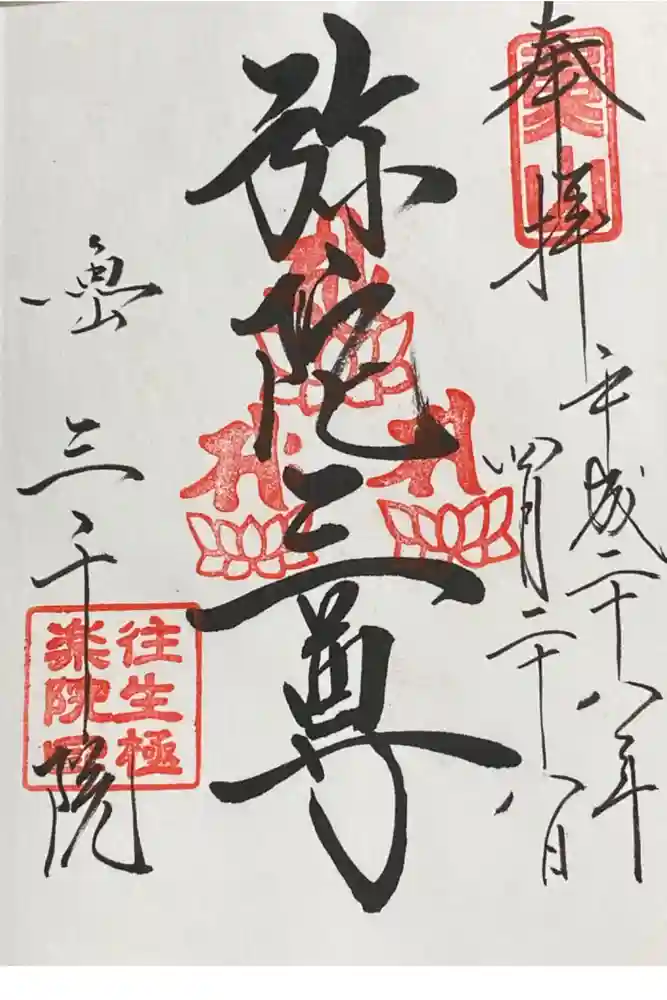 奉拝
平成二十八年
四月二十八日
弥陀三尊
魚山
三千院
往生極
楽院印